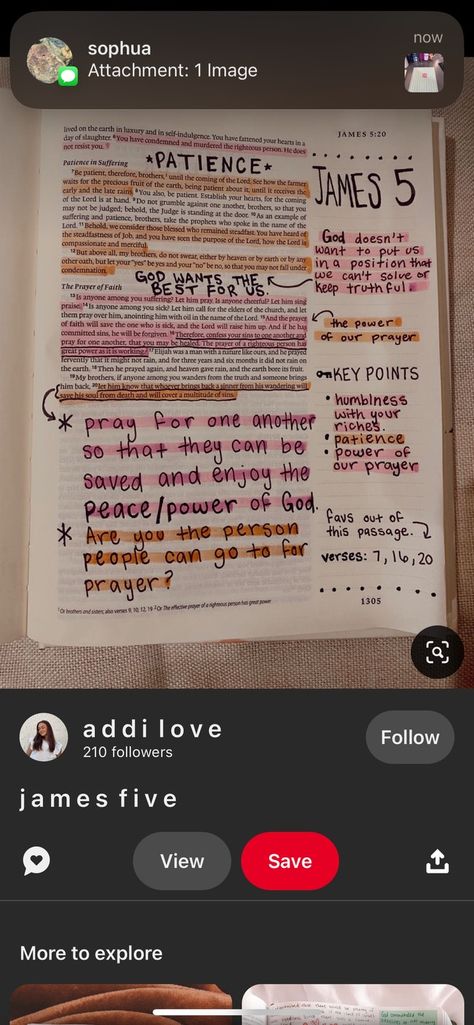 sophua
now
Attachment: 1 Image
lived on the earth in luxury and in self-indulgence. You have fattened your hearts in a
day of slaughter. ⁶You have condemned and murdered the righteous person. He does
not resist you.
JAMES 5:20
Patience in Suffering
*PATIENCE*
⁷Be patient, therefore, brothers,¹ until the coming of the Lord. See how the farmer
waits for the precious fruit of the earth, being patient about it, until it receives the
early and the late rains. ⁸You also, be patient. Establish your hearts, for the coming
of the Lord is at hand. ⁹Do not grumble against one another, brothers, so that you
may not be judged; behold, the Judge is standing at the door. ¹⁰As an example of
suffering and patience, brothers, take the prophets who spoke in the name of the
Lord. ¹¹Behold, we consider those blessed who remained steadfast. You have heard of
the steadfastness of Job, and you have seen the purpose of the Lord, how the Lord is
compassionate and merciful.
¹²But above all, my brothers, do not swear, either by heaven or by earth or by any
other oath, but let your "yes" be yes and your "no" be no, so that you may not fall under
condemnation.
GOD WANTS THE
BEST FOR US.
The Prayer of Faith
¹³Is anyone among you suffering? Let him pray. Is anyone cheerful? Let him sing
praise. ¹⁴Is anyone among you sick? Let him call for the elders of the church, and let
them pray over him, anointing him with oil in the name of the Lord. ¹⁵And the prayer
of faith will save the one who is sick, and the Lord will raise him up. And if he has
committed sins, he will be forgiven. ¹⁶Therefore, confess your sins to one another and
pray for one another, that you may be healed. The prayer of a righteous person has
great power as it is working.² ¹⁷Elijah was a man with a nature like ours, and he prayed
fervently that it might not rain, and for three years and six months it did not rain on
the earth. ¹⁸Then he prayed again, and heaven gave rain, and the earth bore its fruit.
¹⁹My brothers, if anyone among you wanders from the truth and someone brings
him back, ²⁰let him know that whoever brings back a sinner from his wandering will
save his soul from death and will cover a multitude of sins.
* pray for one another
so that they can be
saved and enjoy the
peace/power of God.
* Are you the person
people can go to for
prayer?
¹Or brothers and sisters; also verses 9, 10, 12, 19 ²Or The effective prayer of a righteous person has great power
JAMES 5
God doesn't
want to put us
in a position that
we can't solve or
keep truthful.
the power
of our prayer
KEY POINTS
• humblness
with your
riches.
• patience
• power of
our prayer
favs out of
this passage.
verses: 7, 16, 20
1305
addi love
210 followers
Follow
james five
View
Save
More to explore